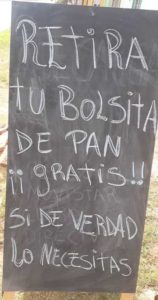 RETIRA
TU BOLSITA
DE PAN
¡¡GRATIS!!
SI DE VERDAD
LO NECESITAS